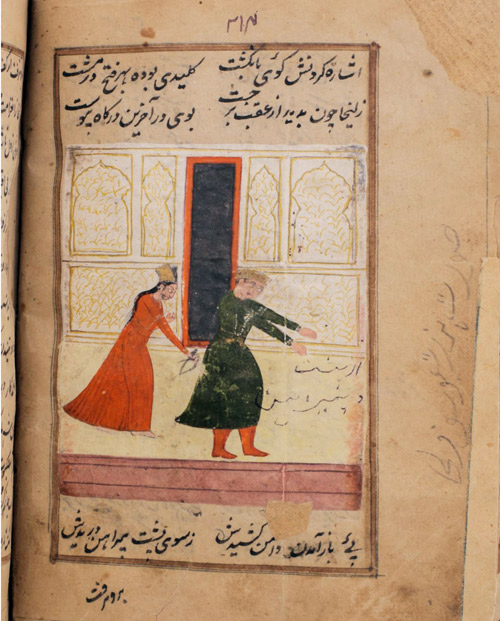 اشاره کردنش گوئی بانگشت کلیدی بوده بهر فتح در مشت
زلیخا چون بدید از عقب برجست بوی در آخرین درگاه پیوست
پئ باز آمدن دامن کشیدش ز سوی پشت پیراهن دریدش
برون رفت